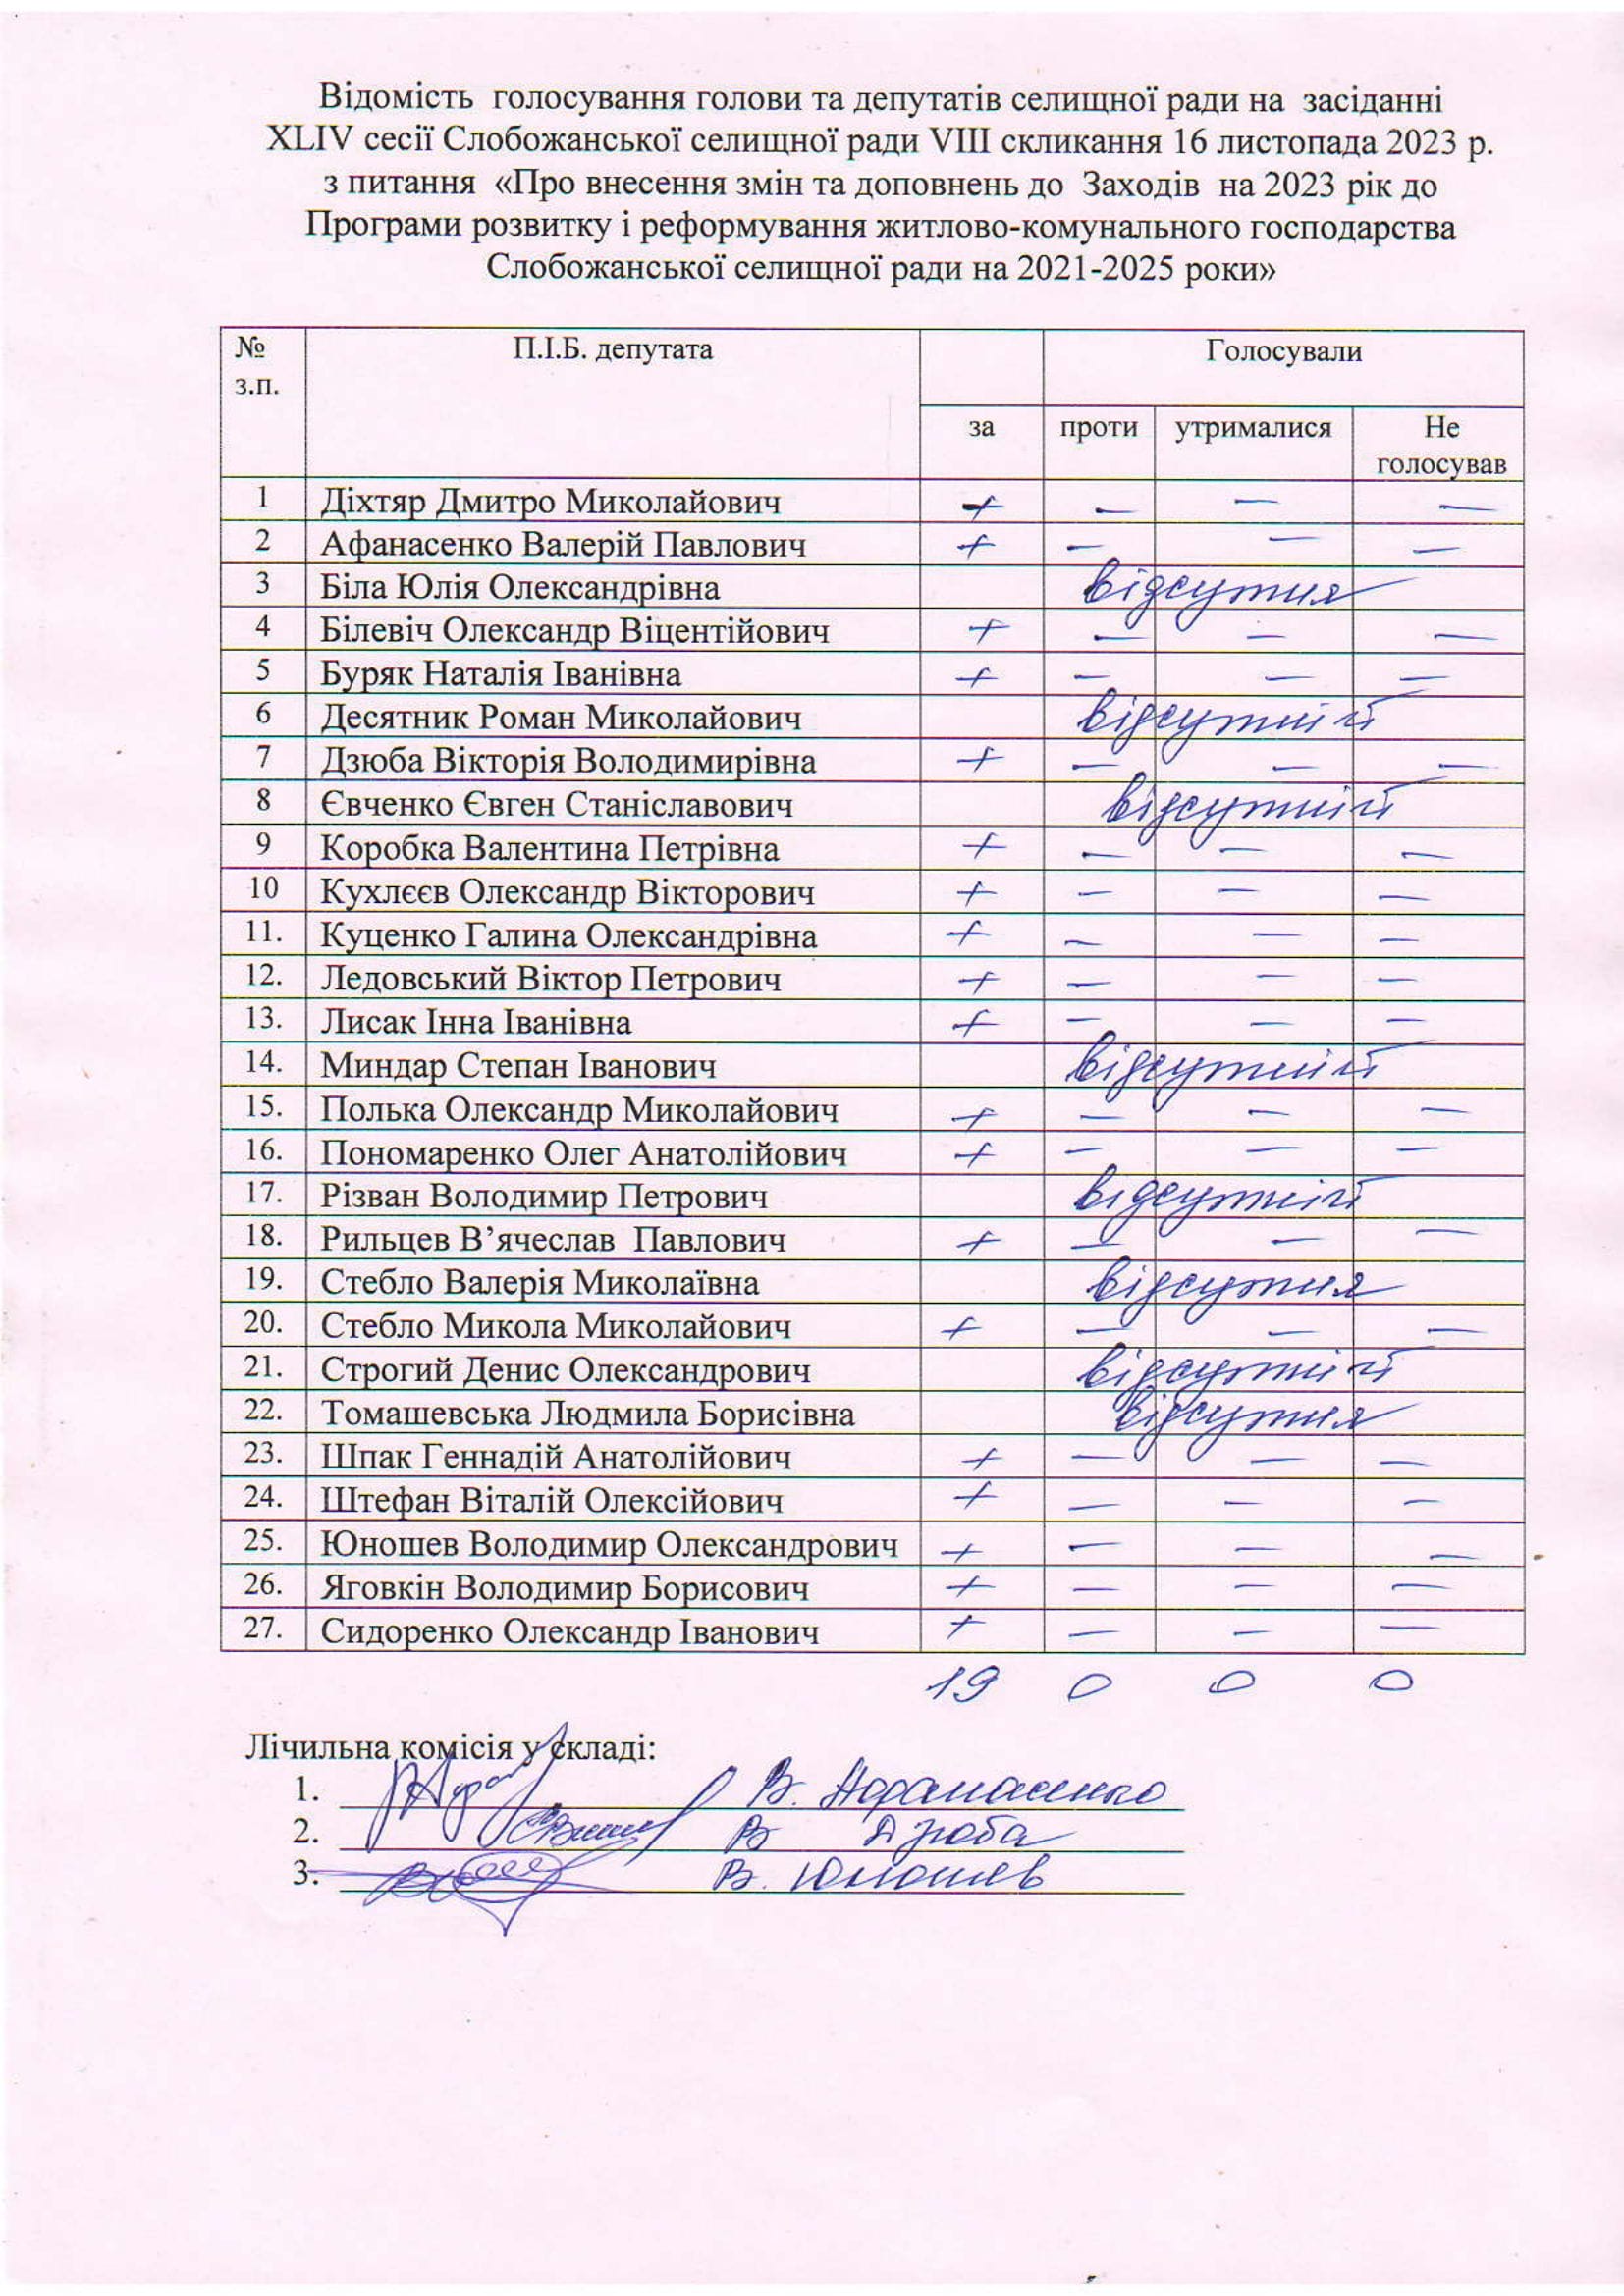 Відомість голосування голови та депутатів селищної ради на засіданні
XLIV сесії Слобожанської селищної ради VIII скликання 16 листопада 2023 р.
з питання «Про внесення змін та доповнень до Заходів на 2023 рік до
Програми розвитку і реформування житлово-комунального господарства
Слобожанської селищної ради на 2021-2025 роки»
№ з.п. П.І.Б. депутата Голосували
за проти утрималися Не голосував
1 Діхтяр Дмитро Миколайович + — — —
2 Афанасенко Валерій Павлович + — — —
3 Біла Юлія Олександрівна відсутня
4 Білевіч Олександр Віцентійович + — — —
5 Буряк Наталія Іванівна + — — —
6 Десятник Роман Миколайович відсутній
7 Дзюба Вікторія Володимирівна + — — —
8 Євченко Євген Станіславович відсутній
9 Коробка Валентина Петрівна + — — —
10 Кухлєєв Олександр Вікторович + — — —
11. Куценко Галина Олександрівна + — — —
12. Ледовський Віктор Петрович + — — —
13. Лисак Інна Іванівна + — — —
14. Миндар Степан Іванович відсутній
15. Полька Олександр Миколайович + — — —
16. Пономаренко Олег Анатолійович + — — —
17. Різван Володимир Петрович відсутній
18. Рильцев В’ячеслав Павлович + — — —
19. Стебло Валерія Миколаївна відсутня
20. Стебло Микола Миколайович + — — —
21. Строгий Денис Олександрович відсутній
22. Томашевська Людмила Борисівна відсутня
23. Шпак Геннадій Анатолійович + — — —
24. Штефан Віталій Олексійович + — — —
25. Юношев Володимир Олександрович + — — —
26. Яговкін Володимир Борисович + — — —
27. Сидоренко Олександр Іванович + — — —
19 0 0 0
Лічильна комісія у складі:
1. В. Афанасенко
2. В Дзюба
3. В. Юношев